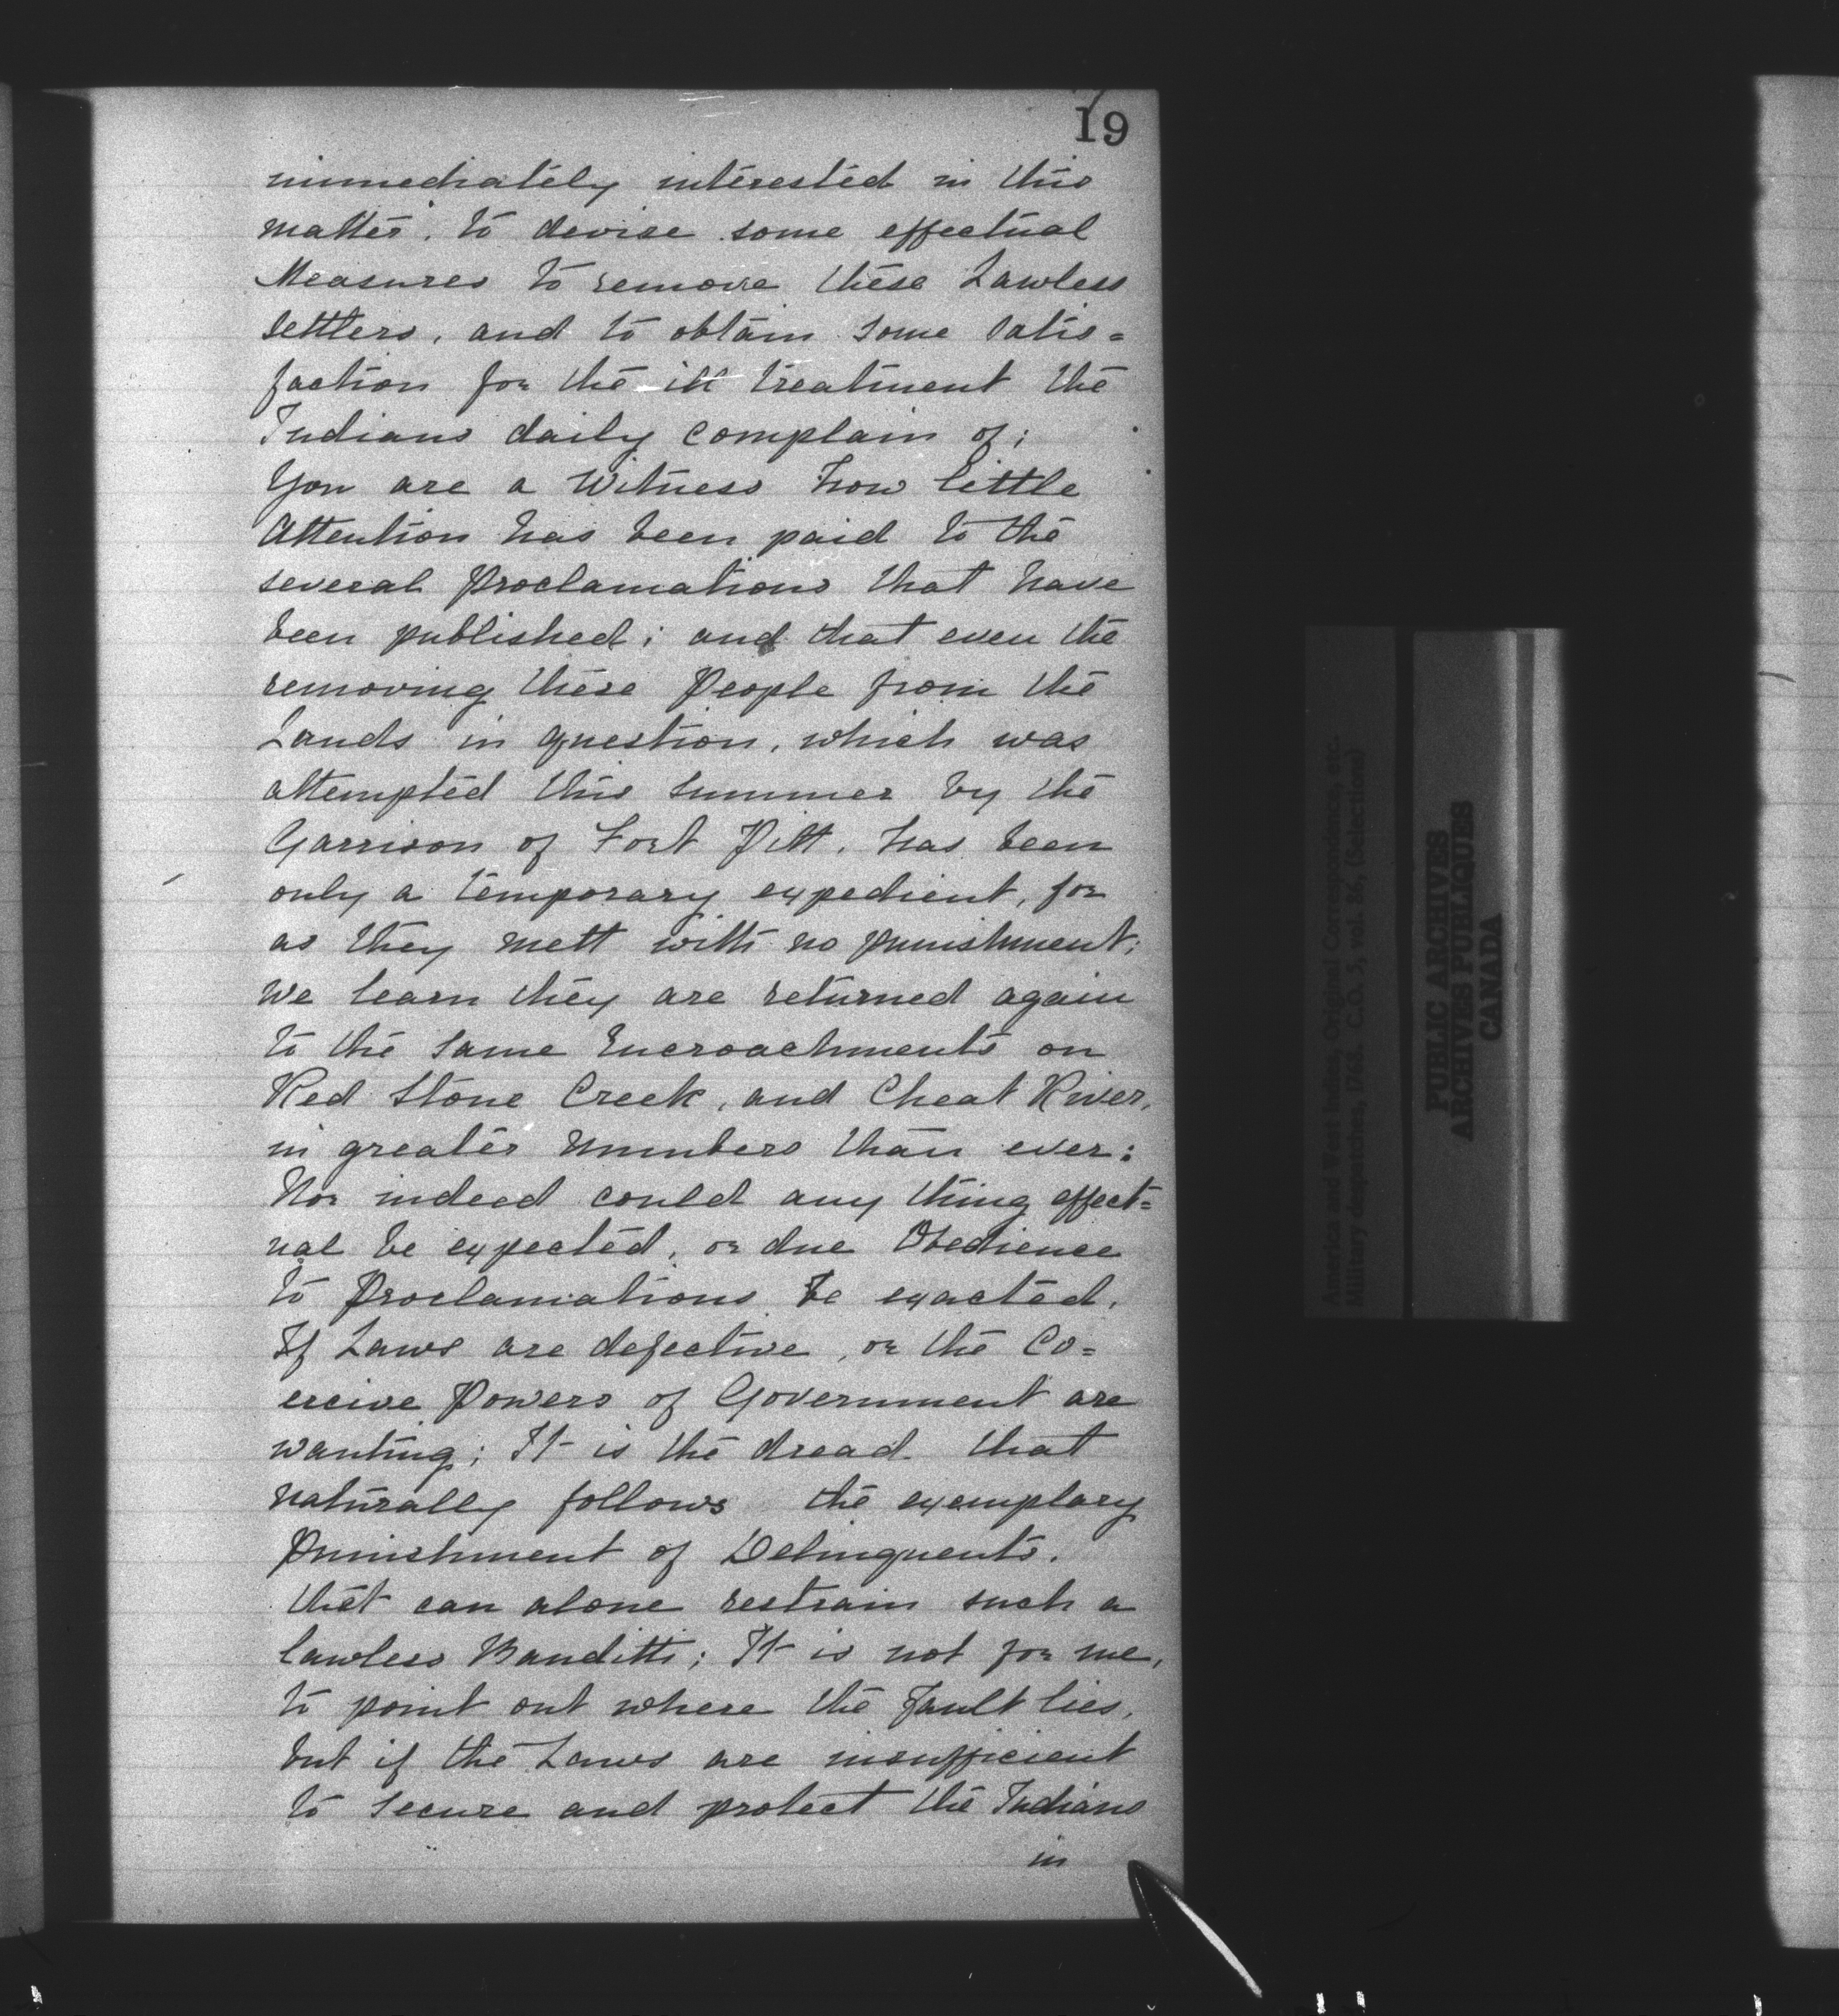 19
immediately interested in this
matter, to devise some effectual
Measures to remove these Lawless
settlers, and to obtain some satis=
faction for the ill treatment the
Indians daily complain of;
You are a Witness how little
Attention has been paid to the
several Proclamations that have
been published; and that even the
removing these People from the
Lands in question, which was
attempted this summer by the
Garrison of Fort Pitt, has been
only a temporary expedient, for
as they mett with no punishment;
we learn they are returned again
to the same Encroachments on
Red Stone Creek, and Cheat River,
in greater numbers than ever:
Nor indeed could any thing effect=
ual be expected, or due Obedience
to Proclamations be exacted,
If Laws are defective, or the Co=
ercive Powers of Government are
wanting; It is the dread that
naturally follows the exemplary
Punishment of Delinquents,
that can alone restrain such a
lawless Banditti; It is not for me,
to point out where the fault lies,
but if the Laws are insufficient
to secure and protect the Indians
in
America and West Indies, Original Correspondence, etc.
Military despatches, 1768. C.O. 5, vol. 86, (Selections)
PUBLIC ARCHIVES
ARCHIVES PUBLIQUES
CANADA